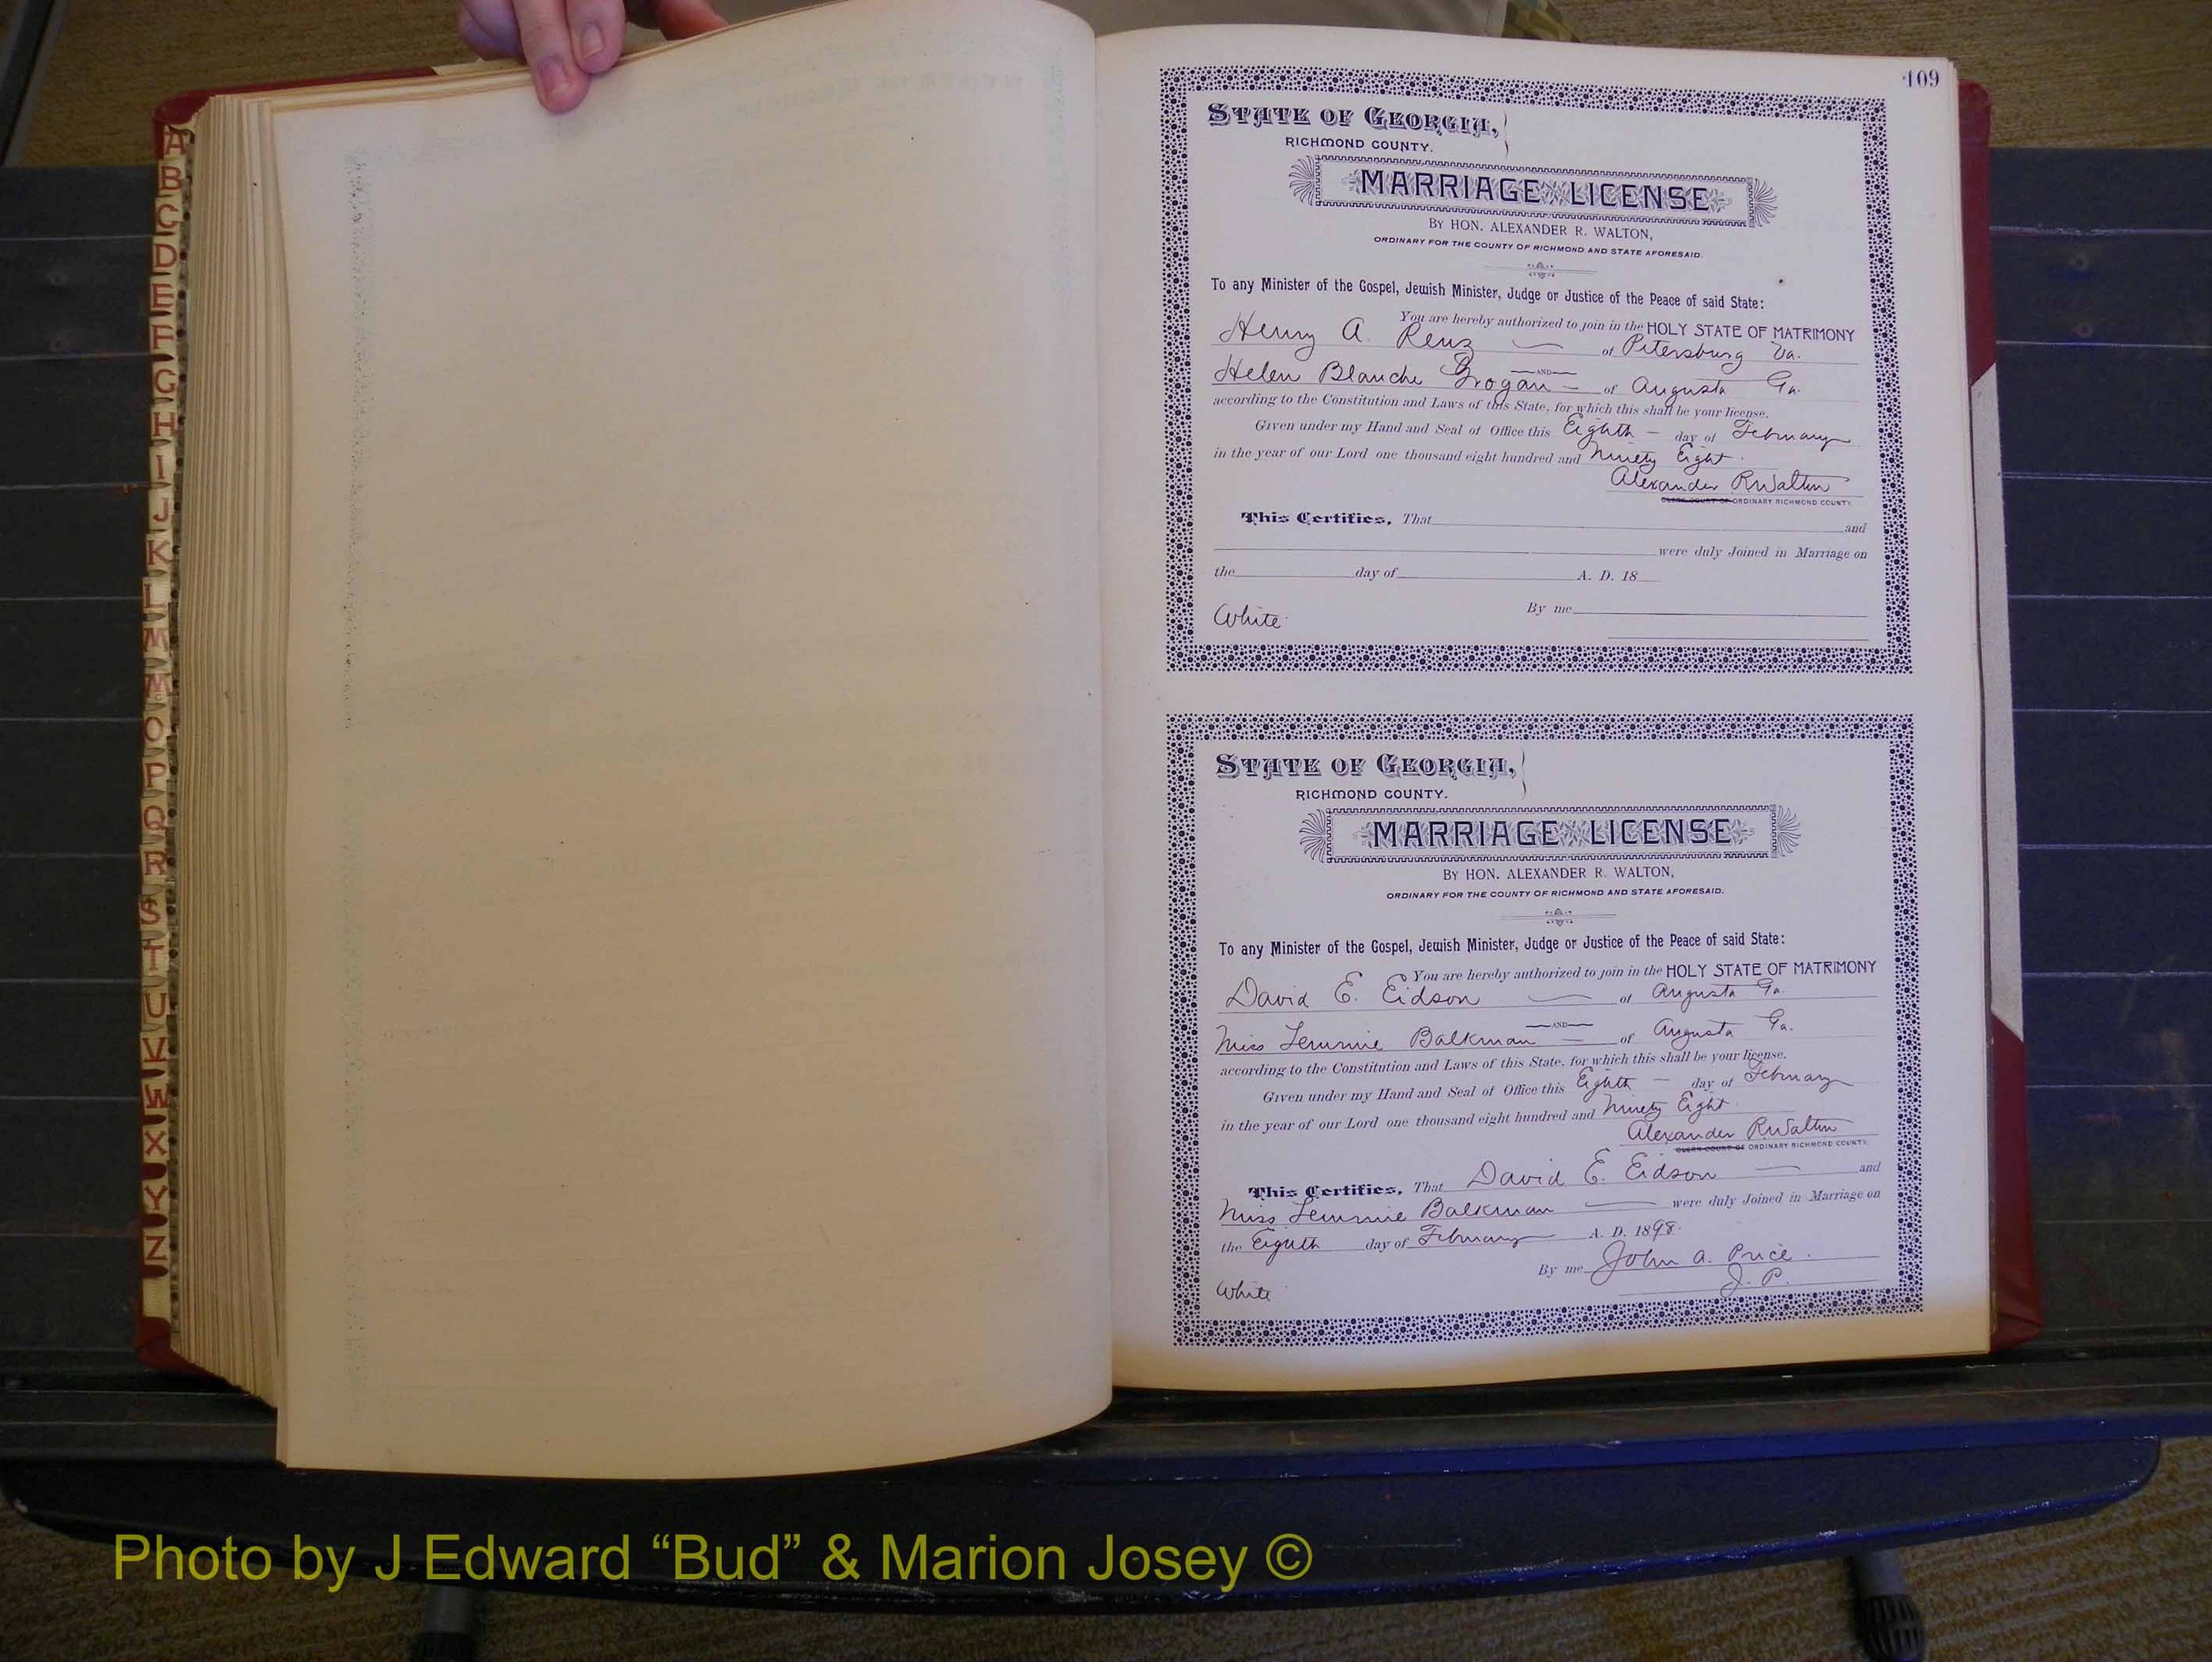 A
B
C
D
E
F
G
H
I
J
K
L
M
M
O
P
Q
R
S
T
U
V
W
X
Y
Z
109
STATE OF GEORGIA,
RICHMOND COUNTY.
MARRIAGE LICENSE
BY HON. ALEXANDER R. WALTON,
ORDINARY FOR THE COUNTY OF RICHMOND AND STATE AFORESAID.
To any Minister of the Gospel, Jewish Minister, Judge or Justice of the Peace of said State:
You are hereby authorized to join in the HOLY STATE OF MATRIMONY
Henry A. Renz of Petersburg Va.
AND
Helen Blanche Grogan of Augusta Ga.
according to the Constitution and Laws of this State, for which this shall be your license.
Given under my Hand and Seal of Office this Eighth day of February
in the year of our Lord one thousand eight hundred and Ninety Eight.
Alexander R Walton
CLERK COURT OF ORDINARY RICHMOND COUNTY.
This Certifies, That and
were duly Joined in Marriage on
the day of A. D. 18
By me
White
STATE OF GEORGIA,
RICHMOND COUNTY.
MARRIAGE LICENSE
BY HON. ALEXANDER R. WALTON,
ORDINARY FOR THE COUNTY OF RICHMOND AND STATE AFORESAID.
To any Minister of the Gospel, Jewish Minister, Judge or Justice of the Peace of said State:
You are hereby authorized to join in the HOLY STATE OF MATRIMONY
David E. Eidson of Augusta Ga.
AND
Miss Lemmie Balkman of Augusta Ga.
according to the Constitution and Laws of this State, for which this shall be your license.
Given under my Hand and Seal of Office this Eighth day of February
in the year of our Lord one thousand eight hundred and Ninety Eight
Alexander R Walton
CLERK COURT OF ORDINARY RICHMOND COUNTY.
This Certifies, That David E. Eidson and
Miss Lemmie Balkman were duly Joined in Marriage on
the Eighth day of February A. D. 1898.
By me John A. Price.
J. P.
White
Photo by J Edward “Bud” & Marion Josey ©